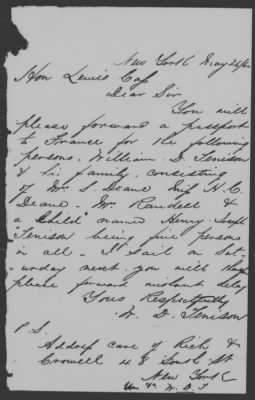 New York May 26/60
Hon Lewis Cass
Dear Sir
You will
please forward a passport
to France for the following
persons. William. D. Tenison
& his family. consisting
of Mrs. S. Deane Miss H. C.
Deane - Mr Randell &
a Child named Henry Joseph
Tenison being five persons
in all - I sail on Sat-
-urday next. you will
please forward without delay
Yours Respectfully
W. D. Tenison
P S.
Address care of Rich &
Crowell 48 South St
New York
W. D. T